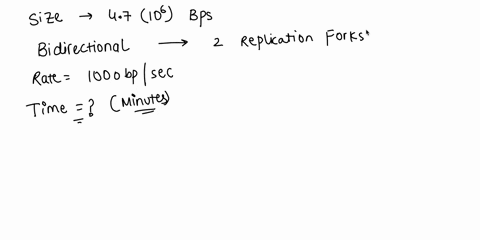 Size → 4.7 (10⁶) Bps
Bidirectional → 2 Replication Forks*
Rate = 1000 bp / sec
Time = ? (Minutes)